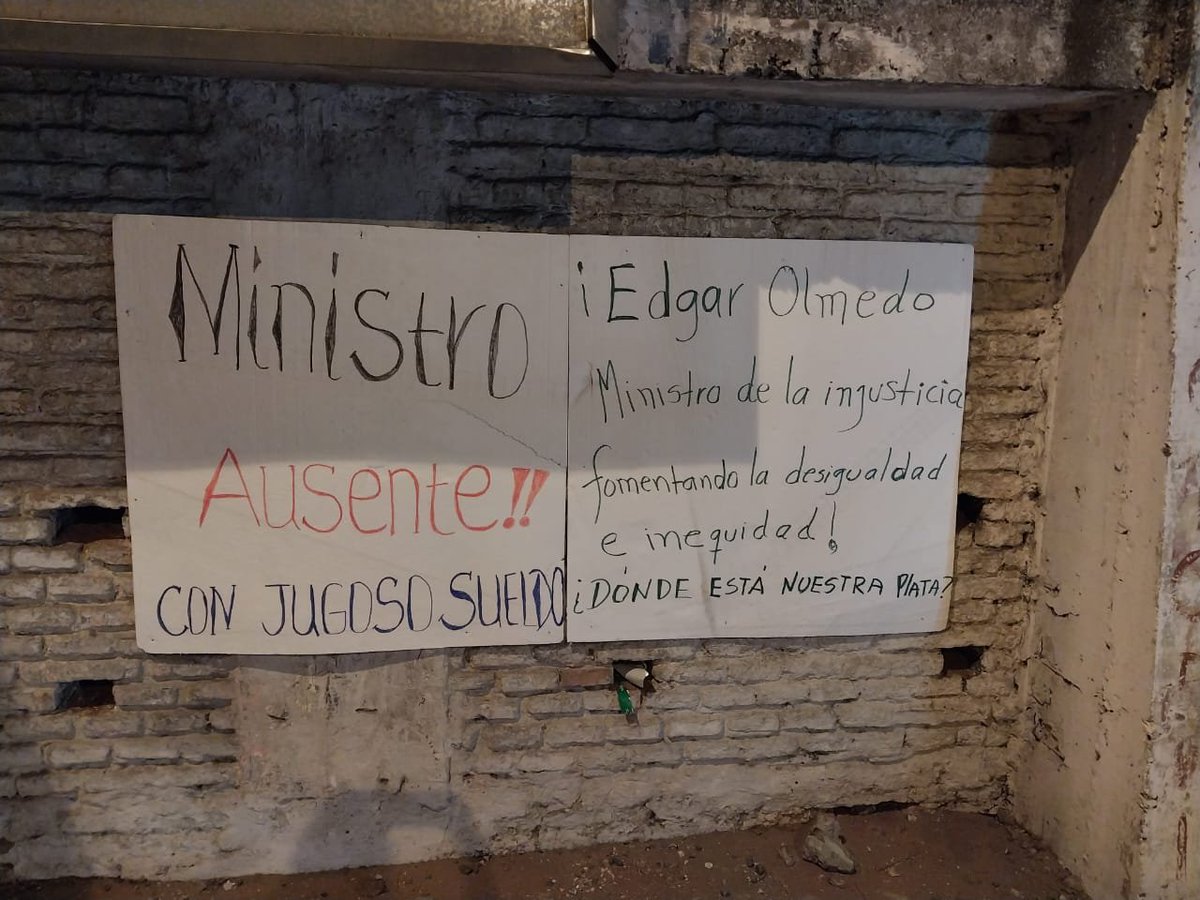 Ministro
Ausente!!
CON JUGOSO SUELDO
¡Edgar Olmedo
Ministro de la injusticia
fomentando la desigualdad
e inequidad!
¿DÓNDE ESTÁ NUESTRA PLATA?